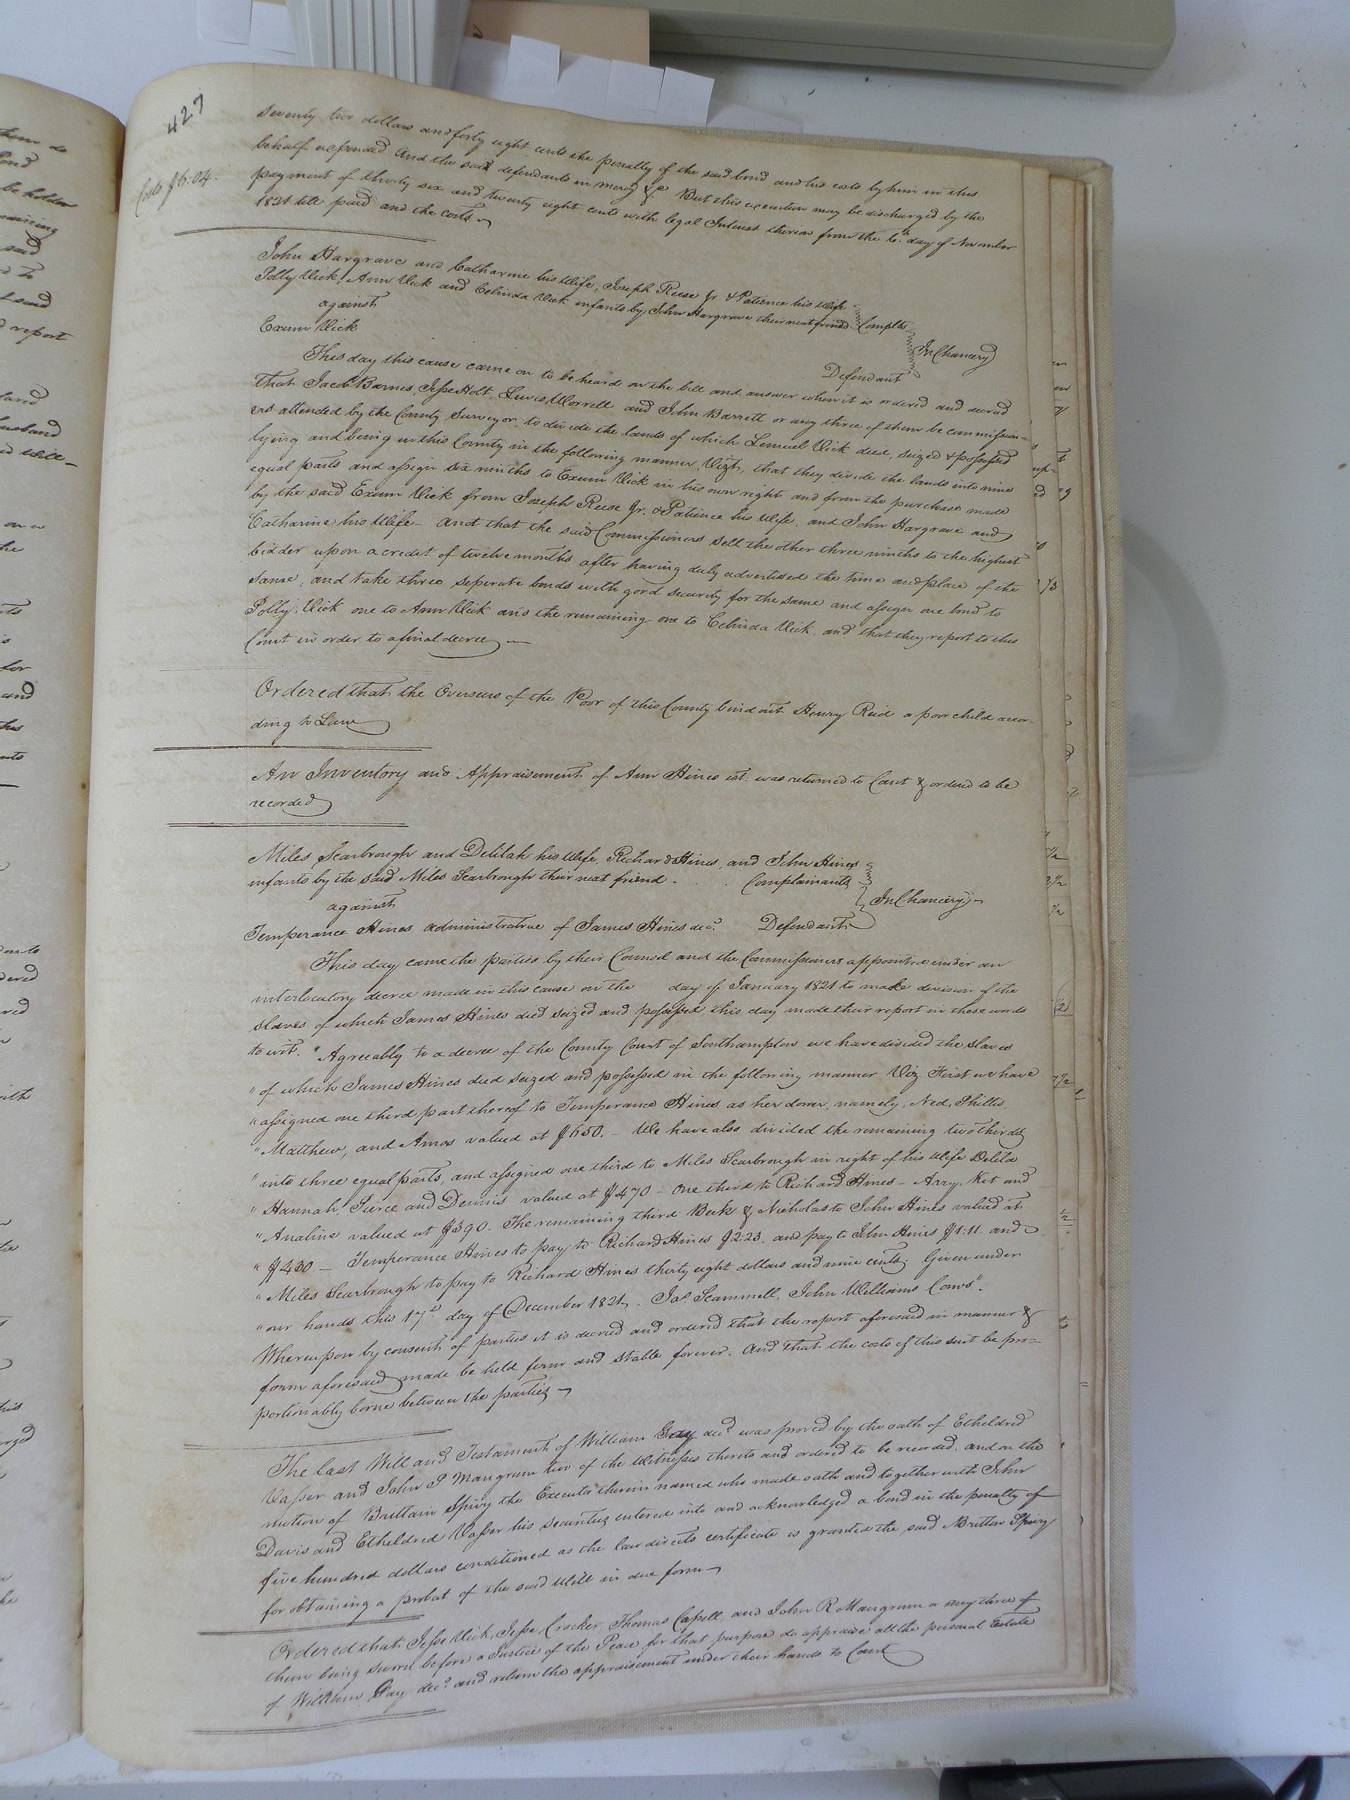 427
seventy two dollars and forty eight cents the penalty of the said bond and his costs by him in this
behalf expended And the said defendants in mercy &c. But this execution may be discharged by the
Costs $6.04.
payment of thirty six and twenty eight cents with legal Interest thereon from the 6th day of November
1821 till paid and the costs
John Hargrave and Catharine his Wife, Joseph Reese Jr & Patience his Wife
Polly Vick, Ann Vick and Celinda Vick infants by John Hargrave their next friend Complts
against
In Chancery
Exum Vick
Defendant
This day this cause came on to be heard on the bill and answer when it is ordered and decreed
that Jacob Barnes, Jesse Holt, Lewis Worrell and John Barrett or any three of them be commission=
ers attended by the County Surveyor, to divide the lands of which Lemuel Vick died, seized & possessed
lying and being in this County in the following manner, Vizt, that they divide the lands into nine
equal parts and assign six ninths to Exum Vick in his own right and from the purchase made
by the said Exum Vick from Joseph Reese Jr. & Patience his Wife, and John Hargrave and
Catharine his Wife - And that the said Commissioners sell the other three ninths to the highest
bidder upon a credit of twelve months after having duly advertised the time and place of the
same, and take three seperate bonds with good security for the same and assign one bond to
Polly Vick one to Ann Vick and the remaining one to Celinda Vick, and that they report to this
Court in order to a final decree
Ordered that the Overseers of the Poor of this County bind out Henry Reid a poor child accor-
ding to Law
An Inventory and Appraisement of Ann Hines est. was returned to Court & ordered to be
recorded
Miles Scarbrough and Delilah his Wife, Richard Hines, and John Hines
infants by the said Miles Scarbrough their next friend - Complainants
against
In Chancery
Temperance Hines administratrix of James Hines decd. Defendant
This day came the parties by their Counsel and the Commissioners appointed under an
interlocutory decree made in this cause on the day of January 1821 to make division of the
slaves of which James Hines died seized and possessed this day made their report in these words
to wit. "Agreeably to a decree of the County Court of Southampton we have divided the slaves
" of which James Hines died seized and possessed in the following manner Viz First we have
" assigned one third part thereof to Temperance Hines as her dower, namely, Ned, Phillis,
" Matthew, and Amos valued at $650. - We have also divided the remaining two thirds
" into three equal parts, and assigned one third to Miles Scarbrough in right of his Wife Delila
" Hannah, Pierce and Dennis valued at $470 - One third to Richard Hines - Arry, Kit and
" Analine valued at $390. The remaining third Beck & Nicholas to John Hines valued at
" $430 - Temperance Hines to pay to Richard Hines $2.23. and pay to John Hines $1.11. and
" Miles Scarbrough to pay to Richard Hines thirty eight dollars and nine cents. Given under
" our hands this 17th day of December 1821. Jas Scammell, John Williams Coms".
Whereupon by consent of parties it is decreed and ordered that the report aforesaid in manner &
form aforesaid made be held firm and stable forever. And that the costs of this suit be pro=
portionably borne between the parties
The last Will and Testament of William Gay decd was proved by the oath of Etheldred
Vasser and John P Mangrum two of the Witnesses thereto and ordered to be recorded. and on the
motion of Brittain Spivy the Executor therein named who made oath and together with John
Davis and Etheldred Vasser his securities entered into and acknowledged a bond in the penalty of
five hundred dollars conditioned as the law directs certificate is granted the said Britton Spivy
for obtaining a probat of the said Will in due form
Ordered that Jesse Vick, Jesse Crocker, Thomas Capell, and John R Mangrum or any three of
them being sworn before a Justice of the Peace for that purpose do appraise all the personal Estate
of William Gay decd and return the appraisement under their hands to Court